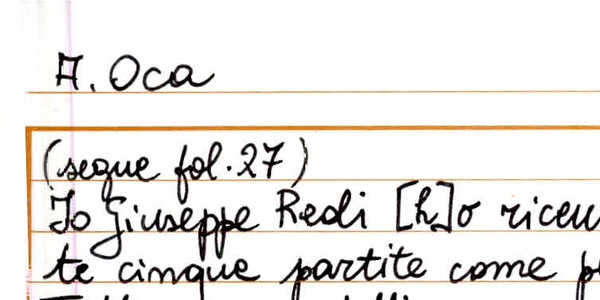 A. Oca
(segue fol. 27)
Io Giuseppe Redi [h]o
te cinque partite come